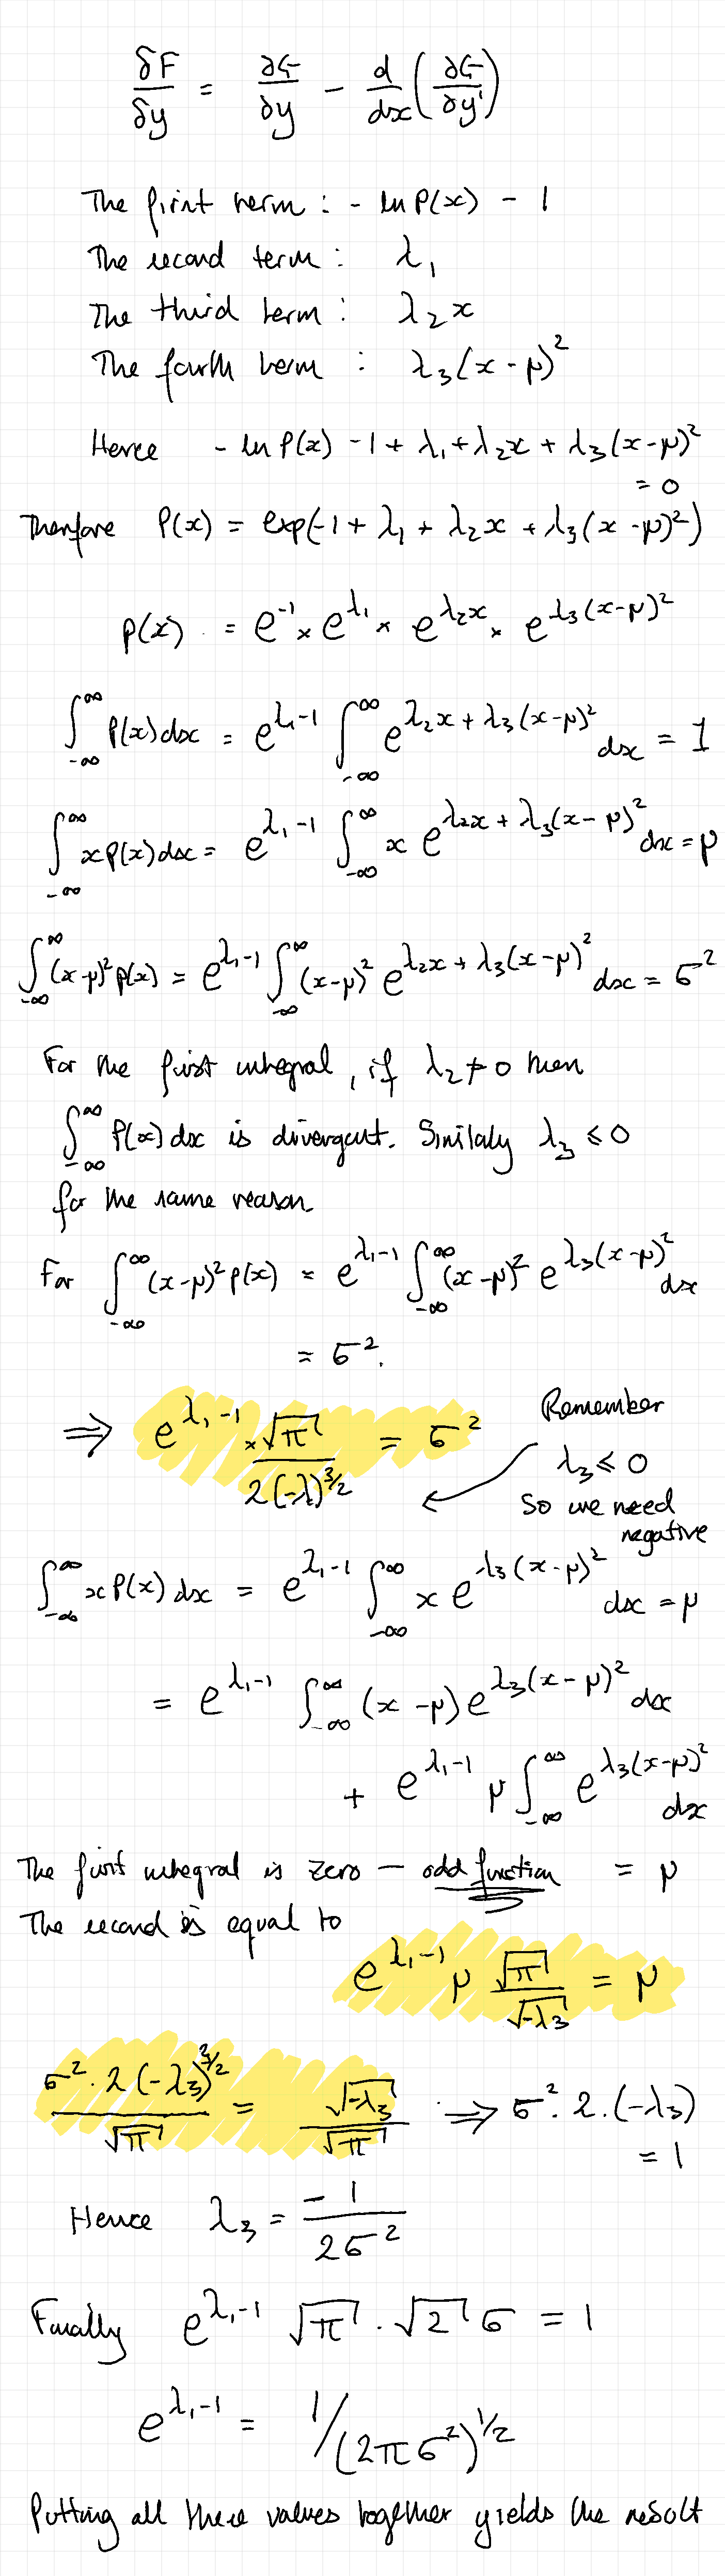 δF/δy = ∂G/∂y - d/dx(∂G/∂y')
The first term : - ln P(x) - 1
The second term : λ₁
The third term : λ₂x
The fourth term : λ₃(x-μ)²
Hence - ln P(x) - 1 + λ₁ + λ₂x + λ₃(x-μ)²
= 0
Therefore P(x) = exp(-1 + λ₁ + λ₂x + λ₃(x-μ)²)
p(x) = e⁻¹ × e^λ₁ × e^λ₂x × e^λ₃(x-μ)²
∫_-∞^∞ P(x)dx = e^λ₁-1 ∫_-∞^∞ e^λ₂x + λ₃(x-μ)² dx = 1
∫_-∞^∞ xp(x)dx = e^λ₁-1 ∫_-∞^∞ x e^λ₂x + λ₃(x-μ)² dx = μ
∫_-∞^∞ (x-μ)² p(x) = e^λ₁-1 ∫_-∞^∞ (x-μ)² e^λ₂x + λ₃(x-μ)² dx = σ²
For the first integral, if λ₂ ≠ 0 then
∫_-∞^∞ P(x) dx is divergent. Similarly λ₃ ≤ 0
for the same reason.
For ∫_-∞^∞ (x-μ)² p(x) = e^λ₁-1 ∫_-∞^∞ (x-μ)² e^λ₃(x-μ)² dx
= σ².
⇒ e^λ₁-1 × √π / 2(-λ)^3/2 = σ²
Remember
λ₃ ≤ 0
So we need
negative
∫_-∞^∞ xP(x) dx = e^λ₁-1 ∫_-∞^∞ x e^λ₃(x-μ)² dx = μ
= e^λ₁-1 ∫_-∞^∞ (x-μ) e^λ₃(x-μ)² dx
+ e^λ₁-1 μ ∫_-∞^∞ e^λ₃(x-μ)² dx
The first integral is zero - odd function = μ
The second is equal to
e^λ₁-1 μ √π / √-λ₃ = μ
σ² · 2(-λ₃)^3/2 / √π = √-λ₃ / √π ⇒ σ² · 2 · (-λ₃)
= 1
Hence λ₃ = -1 / 2σ²
Finally e^λ₁-1 √π · √2 σ = 1
e^λ₁-1 = 1/(2πσ²)^1/2
Putting all these values together yields the result